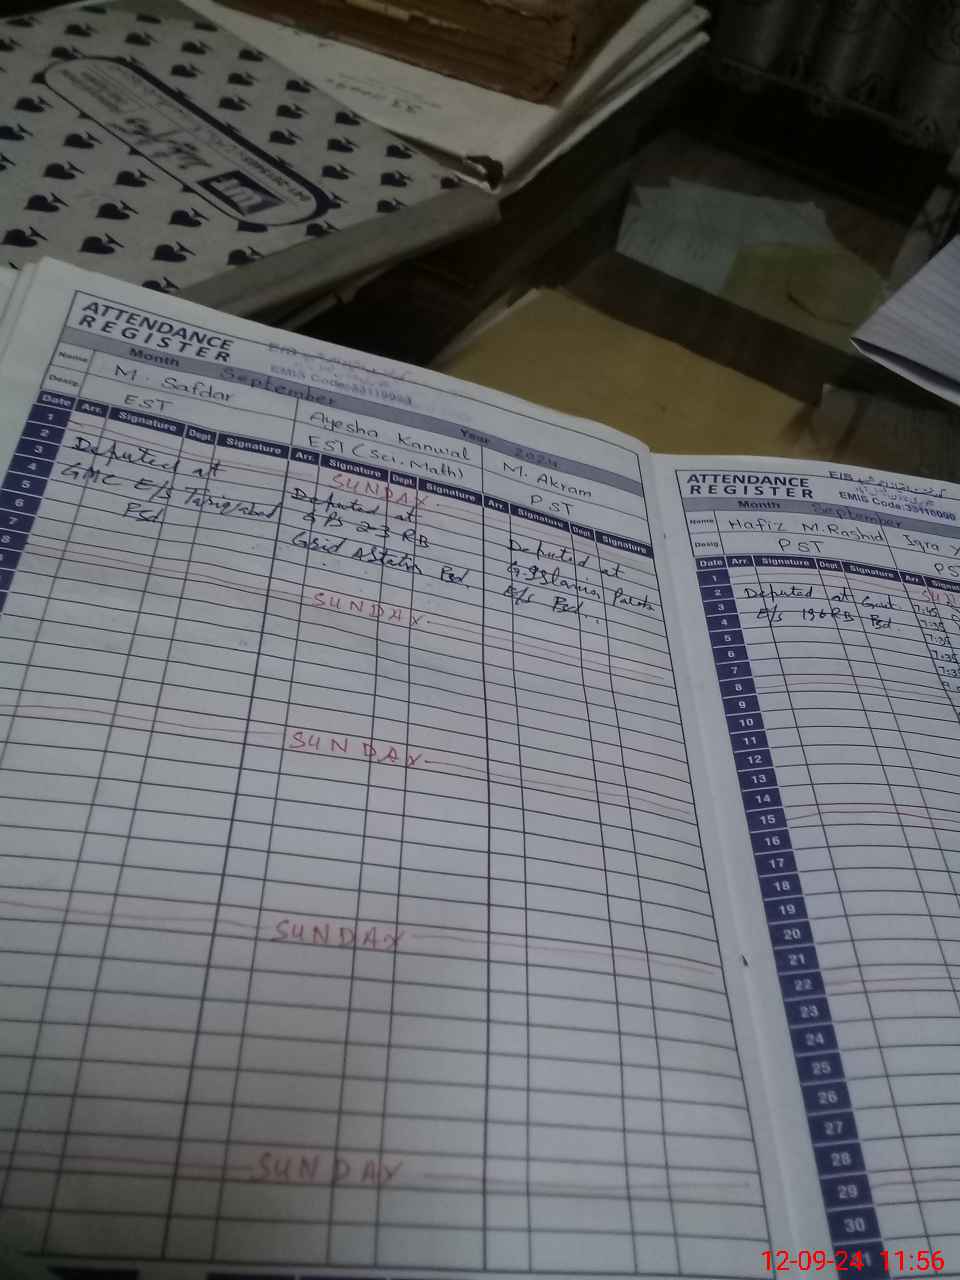 ATTENDANCE
REGISTER
EMIS Code:
Month September Year 2024
Name M. Safdar Ayesha Kanwal M. Akram
Desig. EST EST (Sci. Math) PST
Date Arr. Signature Dept. Signature Arr. Signature Dept. Signature Arr. Signature Dept. Signature
1 SUNDAY
2
3
4
5
6
7
8
Deputed at
GMC E/S Tariqabad
Fsd
Deputed at
GPS 223 RB
Grid Station Fsd
Deputed at
E/S Fsd
SUNDAY
SUNDAY
SUNDAY
SUNDAY
ATTENDANCE
REGISTER
EMIS Code:
Month September
Name Hafiz M. Rashid Iqra
Desig. PST PST
Date Arr. Signature Dept. Signature Arr.
1
2 Deputed at Govt. 7:45
3 E/s 196 RB Fsd 7:35
4 7:35
5 7:35
6
7
8
9
10
11
12
13
14
15
16
17
18
19
20
21
22
23
24
25
26
27
28
29
30
31
12-09-24 11:56